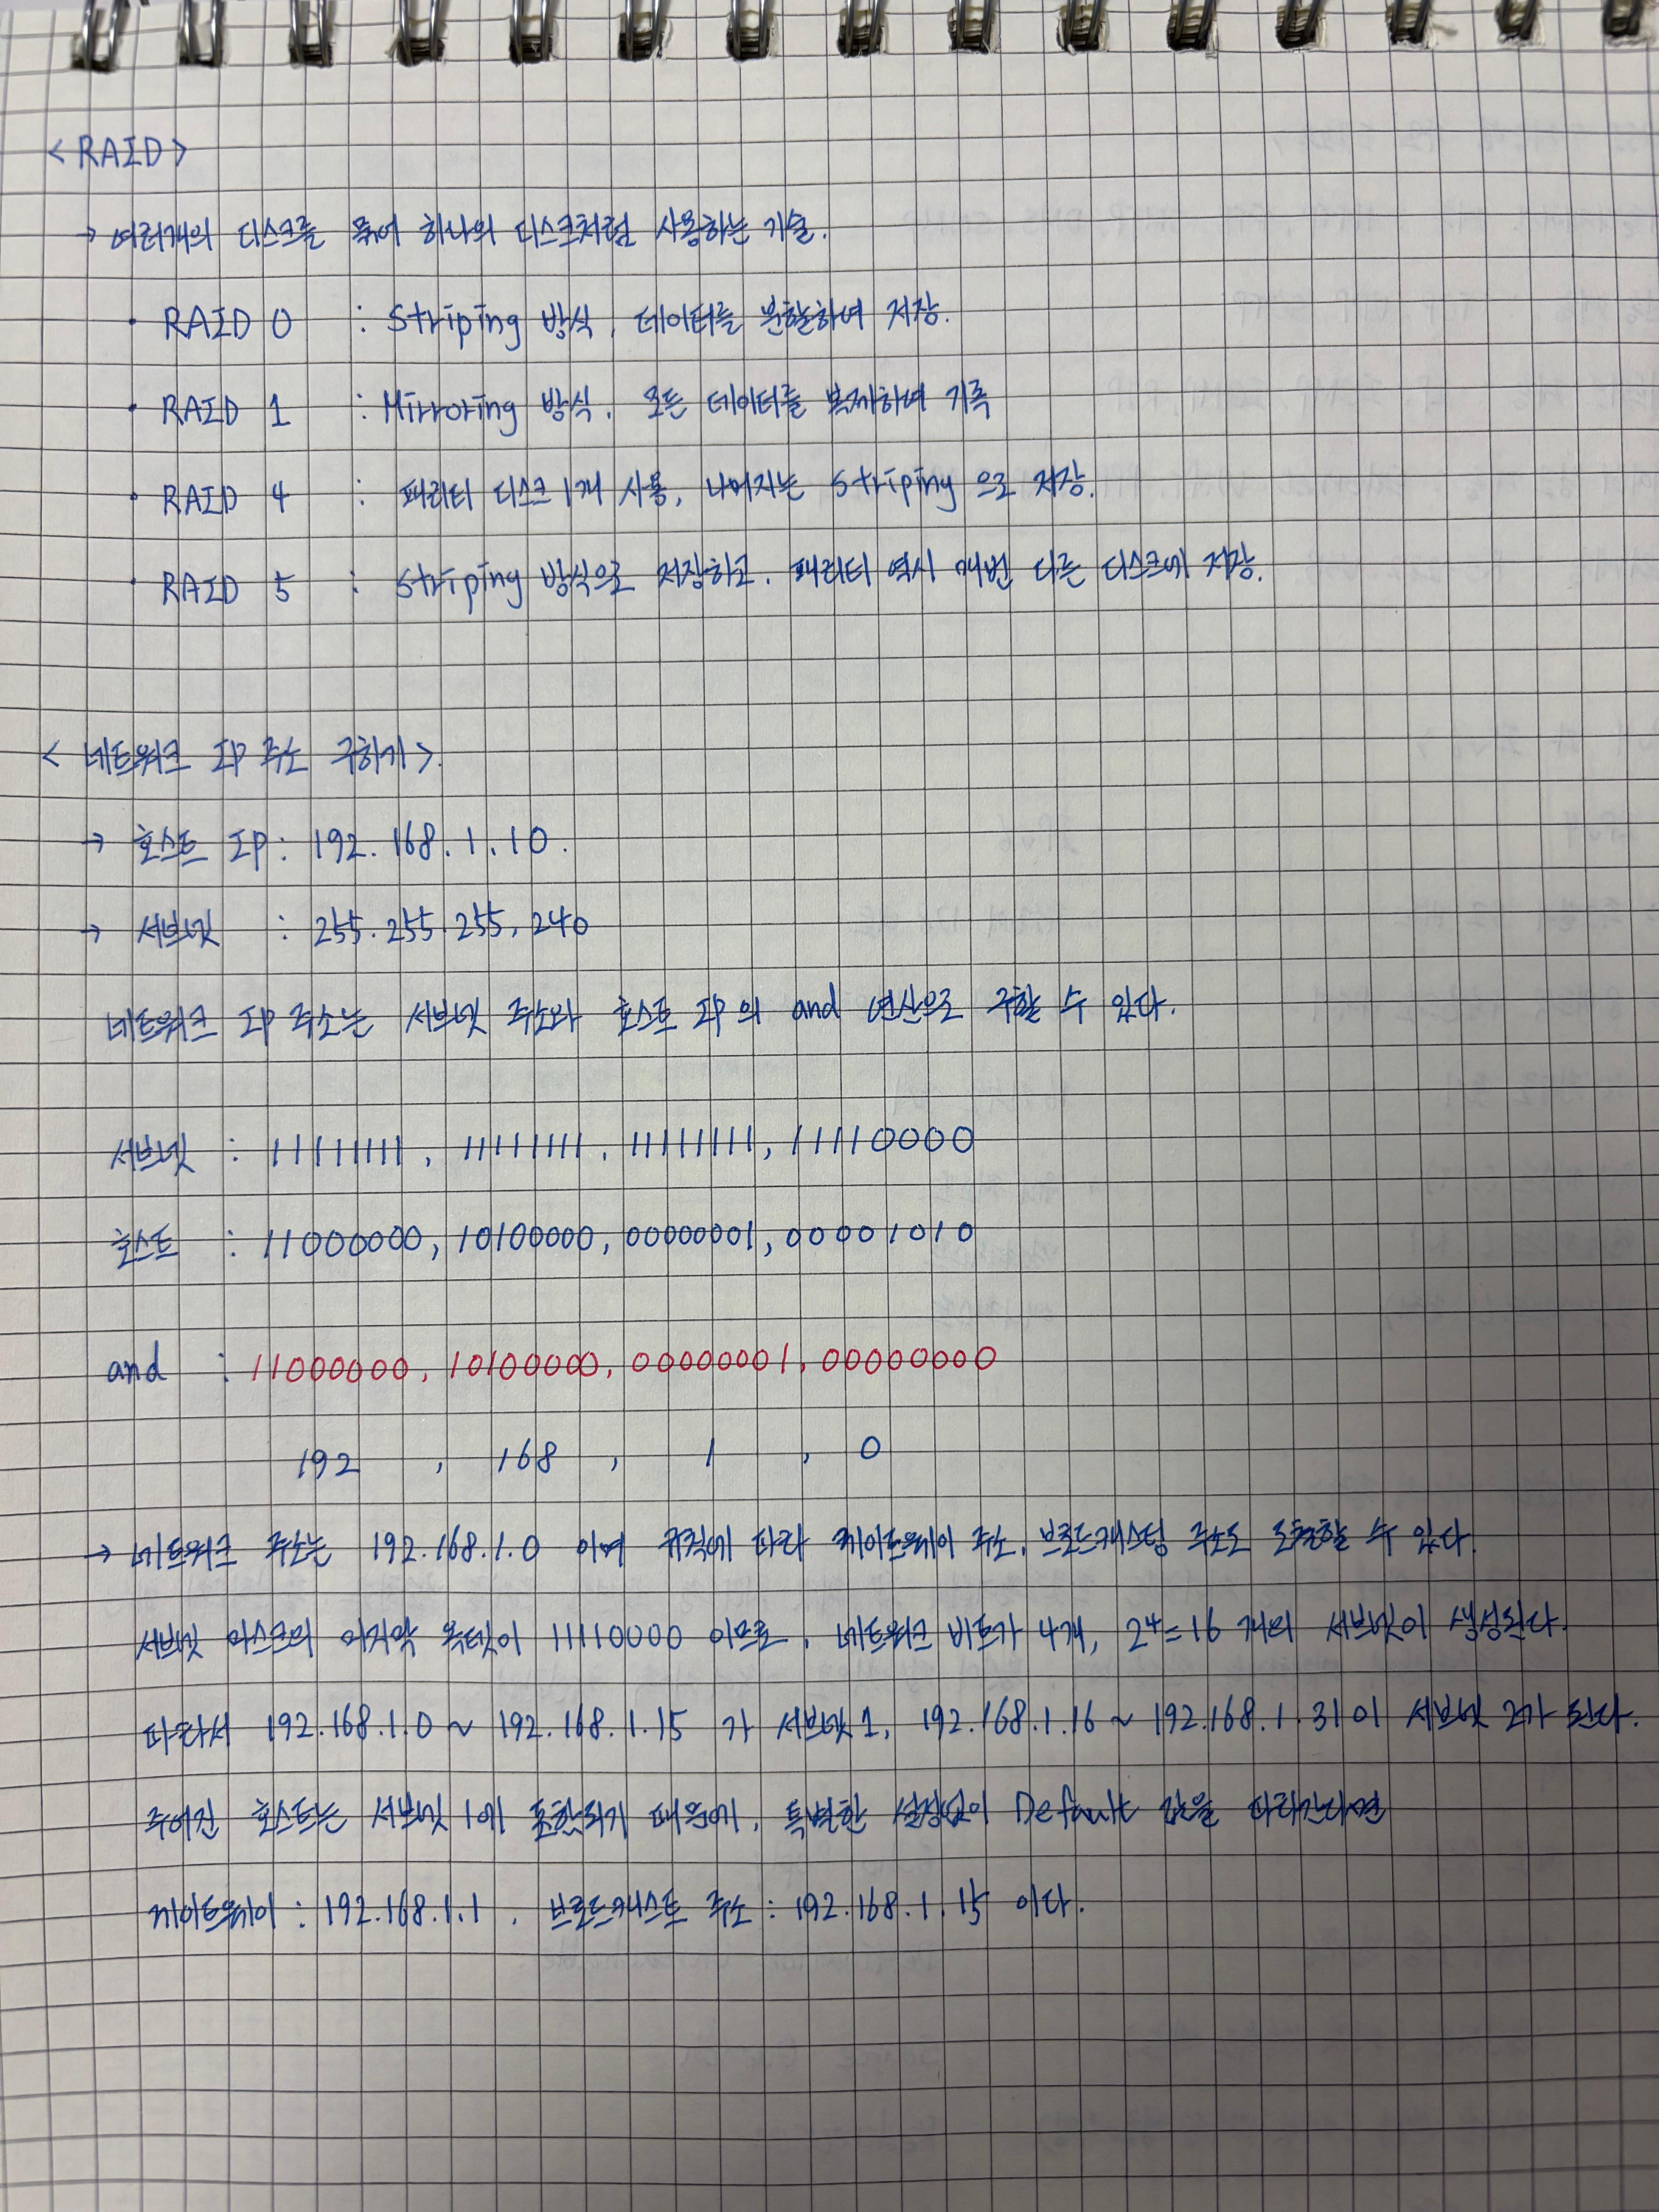 < RAID >
→ 여러개의 디스크를 묶어 하나의 디스크처럼 사용하는 기술.
· RAID 0 : Striping 방식, 데이터를 분할하여 저장.
· RAID 1 : Mirroring 방식, 모든 데이터를 복제하여 기록
· RAID 4 : 패리티 디스크 1개 사용, 나머지는 Striping 으로 저장.
· RAID 5 : Striping 방식으로 저장하고, 패리티 역시 매번 다른 디스크에 저장.
< 네트워크 IP 주소 구하기 >.
→ 호스트 IP : 192. 168. 1. 10.
→ 서브넷 : 255. 255. 255. 240
네트워크 IP 주소는 서브넷 주소와 호스트 IP의 and 연산으로 구할 수 있다.
서브넷 : 11111111, 11111111, 11111111, 11110000
호스트 : 11000000, 10100000, 00000001, 00001010
and : 11000000, 10100000, 00000001, 00000000
192 , 168 , 1 , 0
→ 네트워크 주소는 192.168.1.0 이며 규칙에 따라 게이트웨이 주소, 브로드캐스팅 주소도 도출할 수 있다.
서브넷 마스크의 마지막 옥텟이 11110000 이므로, 네트워크 비트가 4개, 2⁴=16 개의 서브넷이 생성된다.
따라서 192.168.1.0 ~ 192.168.1.15 가 서브넷 1, 192.168.1.16 ~ 192.168.1.31 이 서브넷 2가 된다.
주어진 호스트는 서브넷 1에 포함되기 때문에, 특별한 설정없이 Default 값을 따라간다면
게이트웨이 : 192.168.1.1 , 브로드캐스트 주소 : 192.168.1.15 이다.